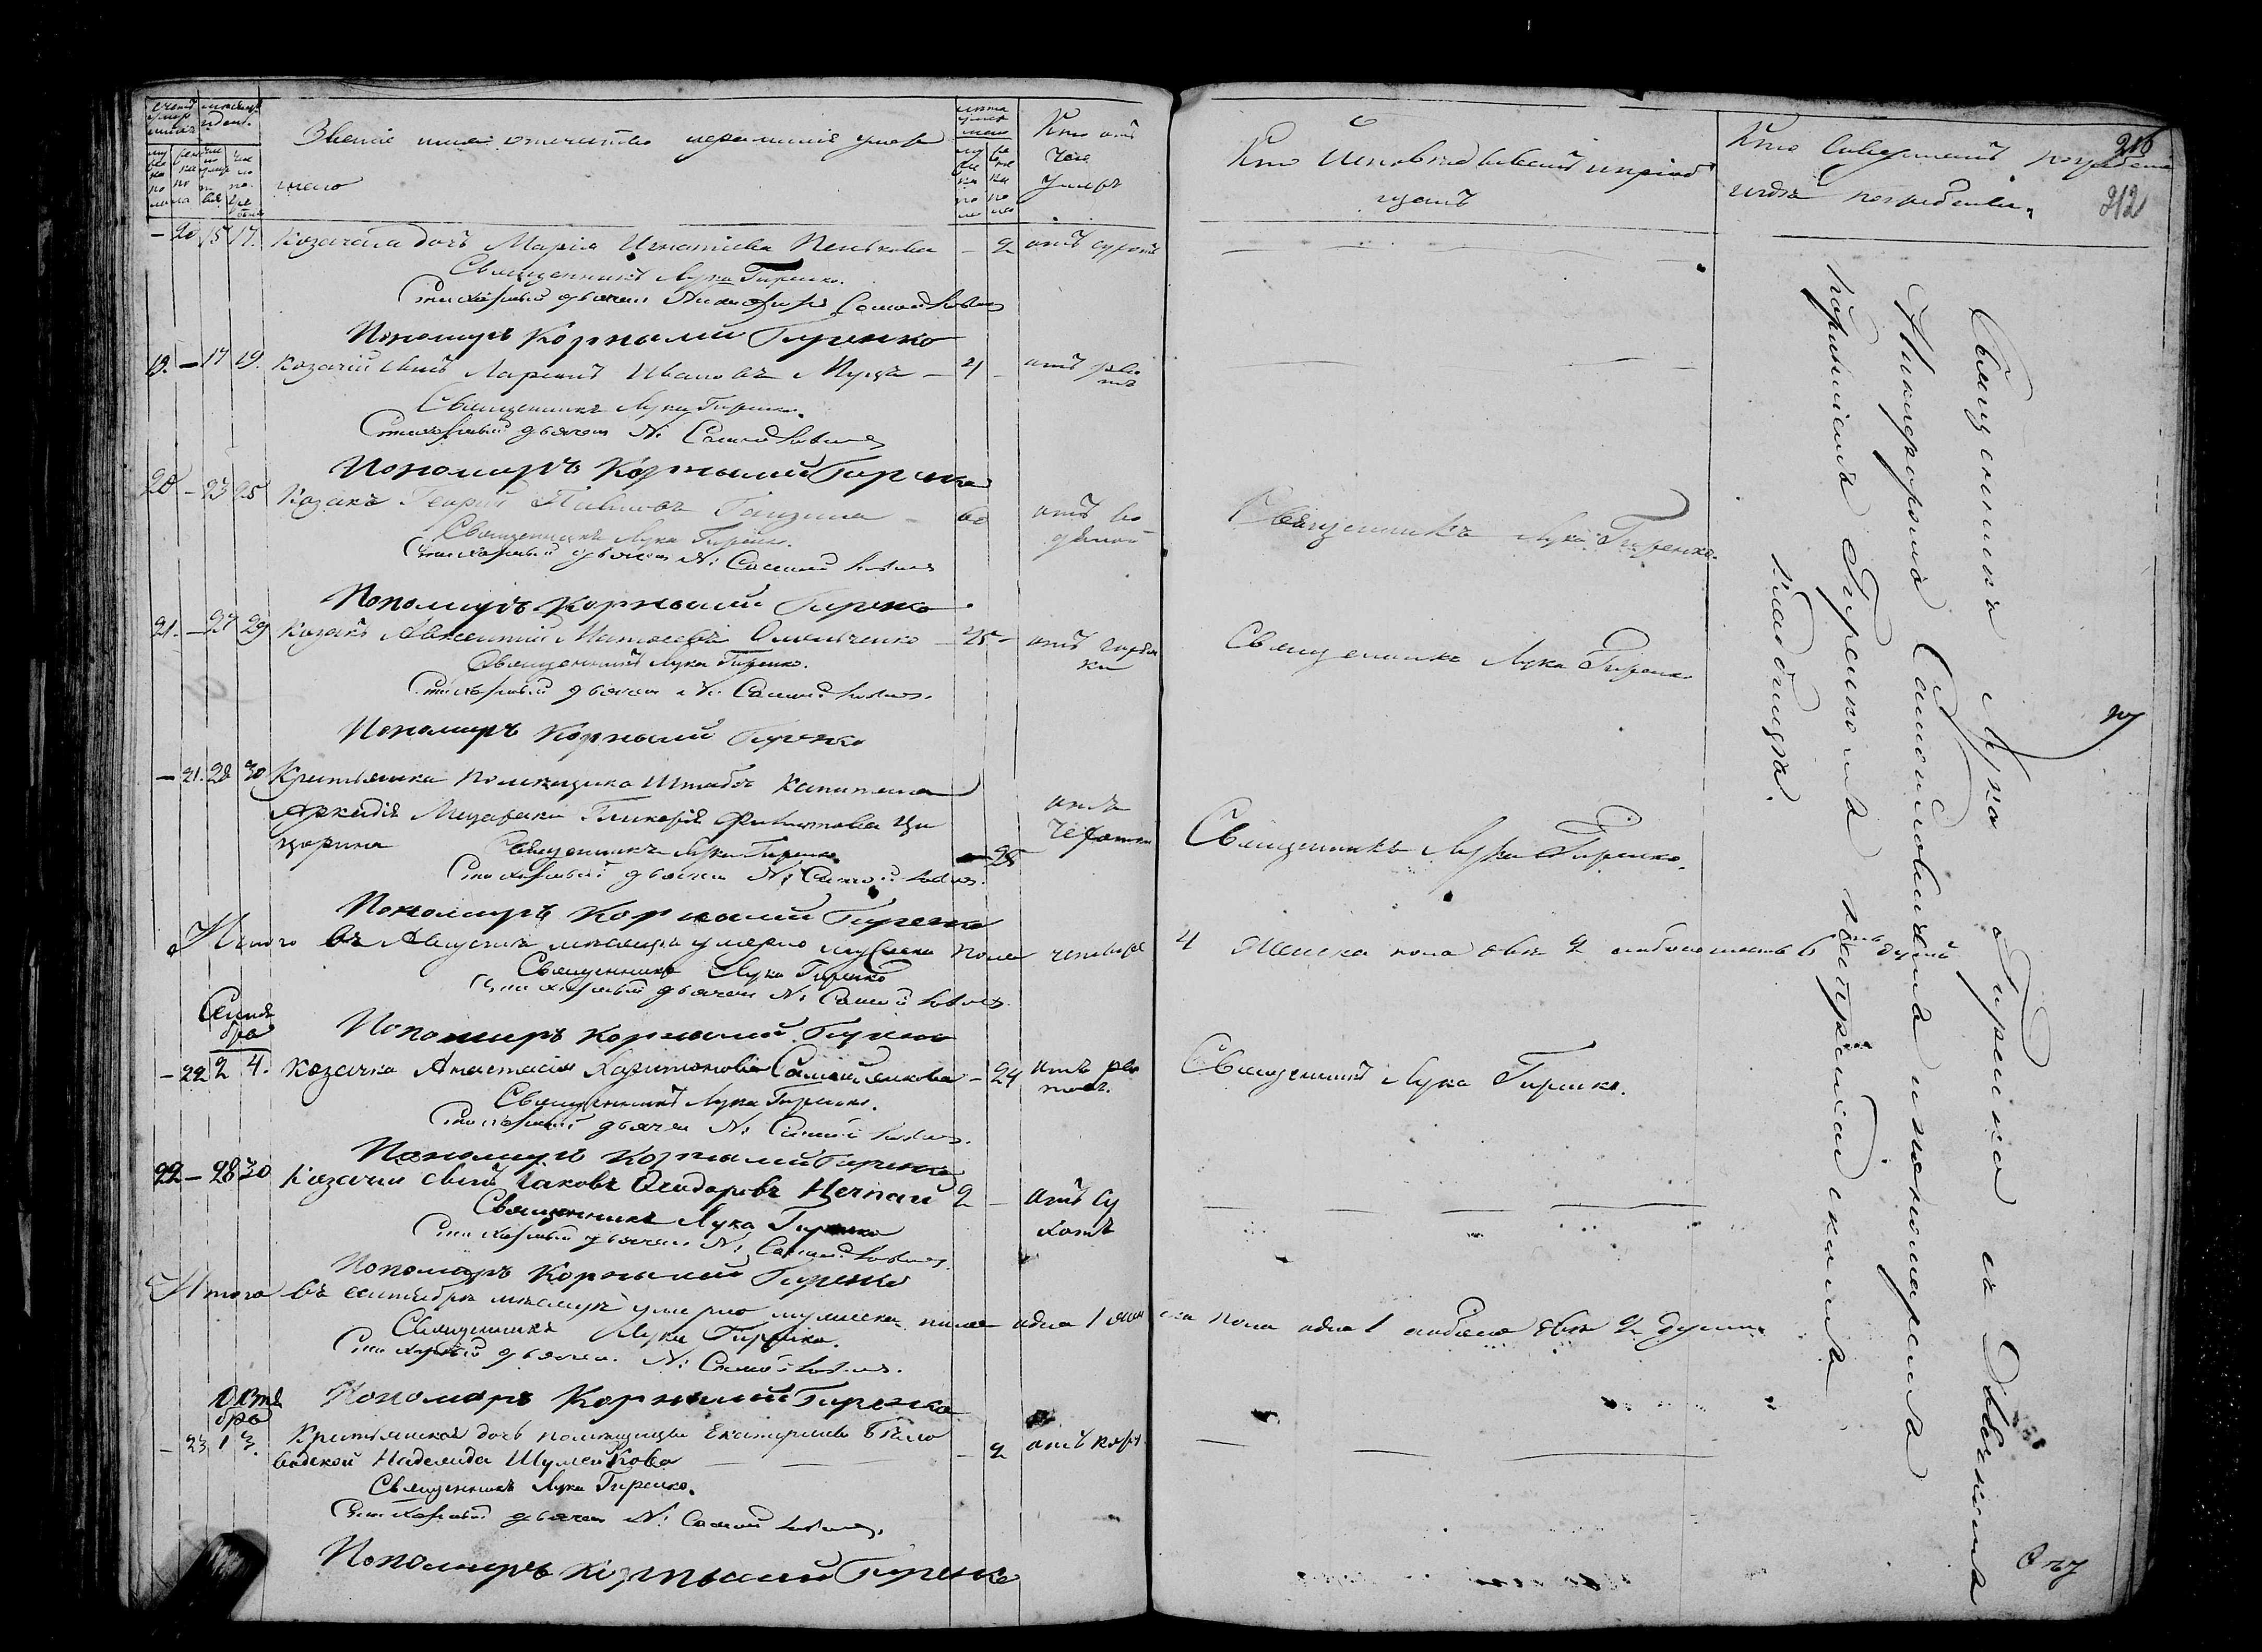 Званіе имя отечество и фамилія умер
шаго
Кто отъ
чего
умеръ
Кто Исповѣдывалъ и пріоб
щалъ
Кто Совершалъ погребеніе
и гдѣ погребены.
216
212
– 20 15 17. Козачья дочь Марія Игнатіева Пенькова – 2 отъ сухотъ
Священникъ Лука Гиренко.
Стихарный дьячекъ Никифоръ Самойловичъ
Пономарь Корнылий Гиренко
19. – 17 19. Козачій сынъ Ларіонъ Ивановъ – 4 –
Священникъ Лука Гиренко.
Стихарный дьячекъ Н: Самойловичъ
Пономарь Корнылий Гиренко
20 – 23 25 Козакъ Георгій Павловъ – 60 отъ во
дяной
Священникъ Лука Гиренко.
Священникъ Лука Гиренко.
Стихарный дьячекъ Н: Самойловичъ
Пономарь Корнылий Гиренко
21. – 27 29 Козакъ Авксентій Матвеевъ Омельченко – 45 – отъ горяч
ки
Священникъ Лука Гиренко
Священникъ Лука Гиренко.
Стихарный дьячекъ Н: Самойловичъ.
Пономарь Корнылий Гиренко
– 21. 28 30 Крестьянка помещика Штабсъ Капитана
Аркадія Гликерія Филиппова Ци
цорина – 25 отъ
чехотки
Священникъ Лука Гиренко.
Священникъ Лука Гиренко.
Стихарный дьячекъ Н: Самойловичъ.
Пономарь Корнылий Гиренко
Итого въ Августѣ мѣсяцѣ умерло мужеска пола четыре 4 женска пола двѣ 2 а обоего шесть 6 душъ
Священникъ Лука Гиренко
Стихарный дьячекъ Н: Самойловичъ.
Сентя
бра
Пономарь Корнылий Гиренко
– 22 2 4. Козачка Анастасія Харитонова Самойленкова – 24
Священникъ Лука Гиренко.
Священникъ Лука Гиренко.
Стихарный дьячекъ Н: Самойловичъ.
Пономарь Корнылий Гиренко
22 – 28 30 Козачій сынъ Іаковъ Федоровъ 2 – отъ су
хотъ
Священникъ Лука Гиренко
Стихарный дьячекъ Н: Самойловичъ.
Пономарь Корнылий Гиренко
Итого въ сентябрѣ мѣсяцѣ умерло мужеска пола одна 1 женска пола одна 1 а обоего двѣ 2 души
Священникъ Лука Гиренко.
Стихарный дьячекъ. Н: Самойловичъ.
Октя
бра
Пономарь Корнылий Гиренко
– 23 1 3. Крестьянская дочь помещицы Екатерины Бѣло
водской Надежда Шумейкова – 2 отъ кору
Священникъ Лука Гиренко.
Стихарный дьячекъ Н: Самойловичъ.
Пономарь Корнылий Гиренко
Священникъ Лука Гиренко съ дьячкомъ
Никифоромъ Самойловичемъ и пономаремъ
Корниліемъ Гиренкомъ на
кладбищѣ.